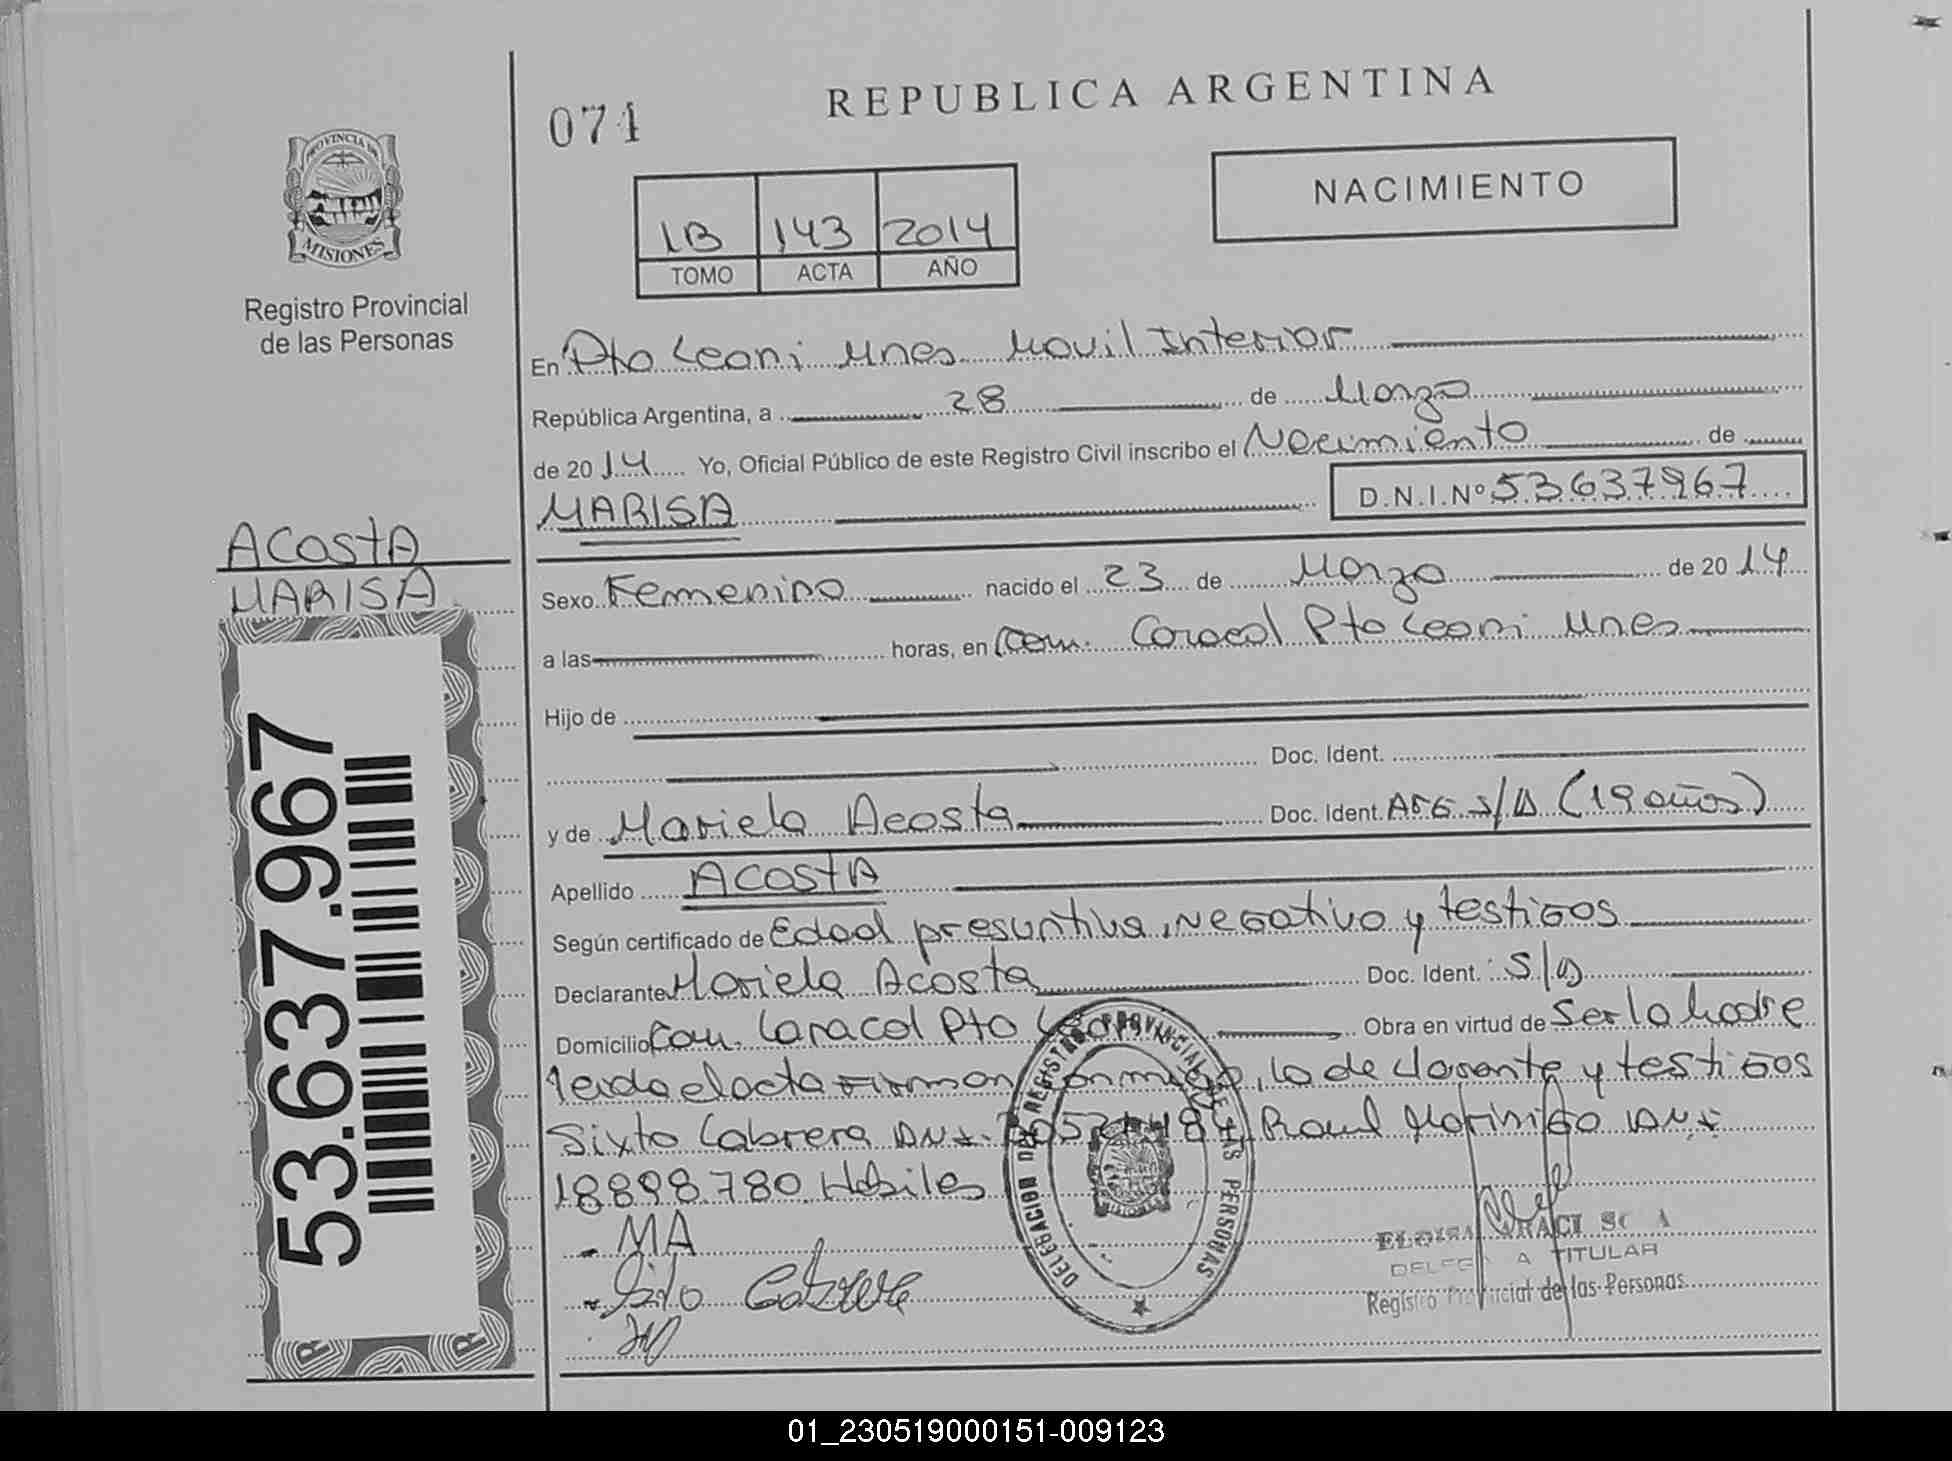 074
REPUBLICA ARGENTINA
NACIMIENTO
1B 143 2014
TOMO ACTA AÑO
PROVINCIA DE
MISIONES
Registro Provincial
de las Personas
En Pto Leoni Mnes Movil Interior
República Argentina, a 28 de Marzo
de 2014 Yo, Oficial Público de este Registro Civil inscribo el Nacimiento de
MARISA D.N.I.Nº 53637967
ACOSTA
MARISA
53.637.967
Sexo Femenino nacido el 23 de Marzo de 2014
a las horas, en Com. Caracol Pto Leoni Mnes
Hijo de
Doc. Ident.
y de Mariela Acosta Doc. Ident. ARG S/D (19 años)
Apellido ACOSTA
Según certificado de Edad presuntiva, Negativo y testigos
Declarante Mariela Acosta Doc. Ident. S/D
Domicilio Com. Caracol Pto Leoni Obra en virtud de Ser la Madre
leida el acta Firman conmigo, la declarante y testigos
Sixto Cabrera DNI. Raul Morinigo DNI
18898780 Habiles
- MA
- Sixto Cabrera
DELEGACION DEL REGISTRO PROVINCIAL DE LAS PERSONAS
MISIONES
TITULAR
Registro Provincial de las Personas
01_230519000151-009123